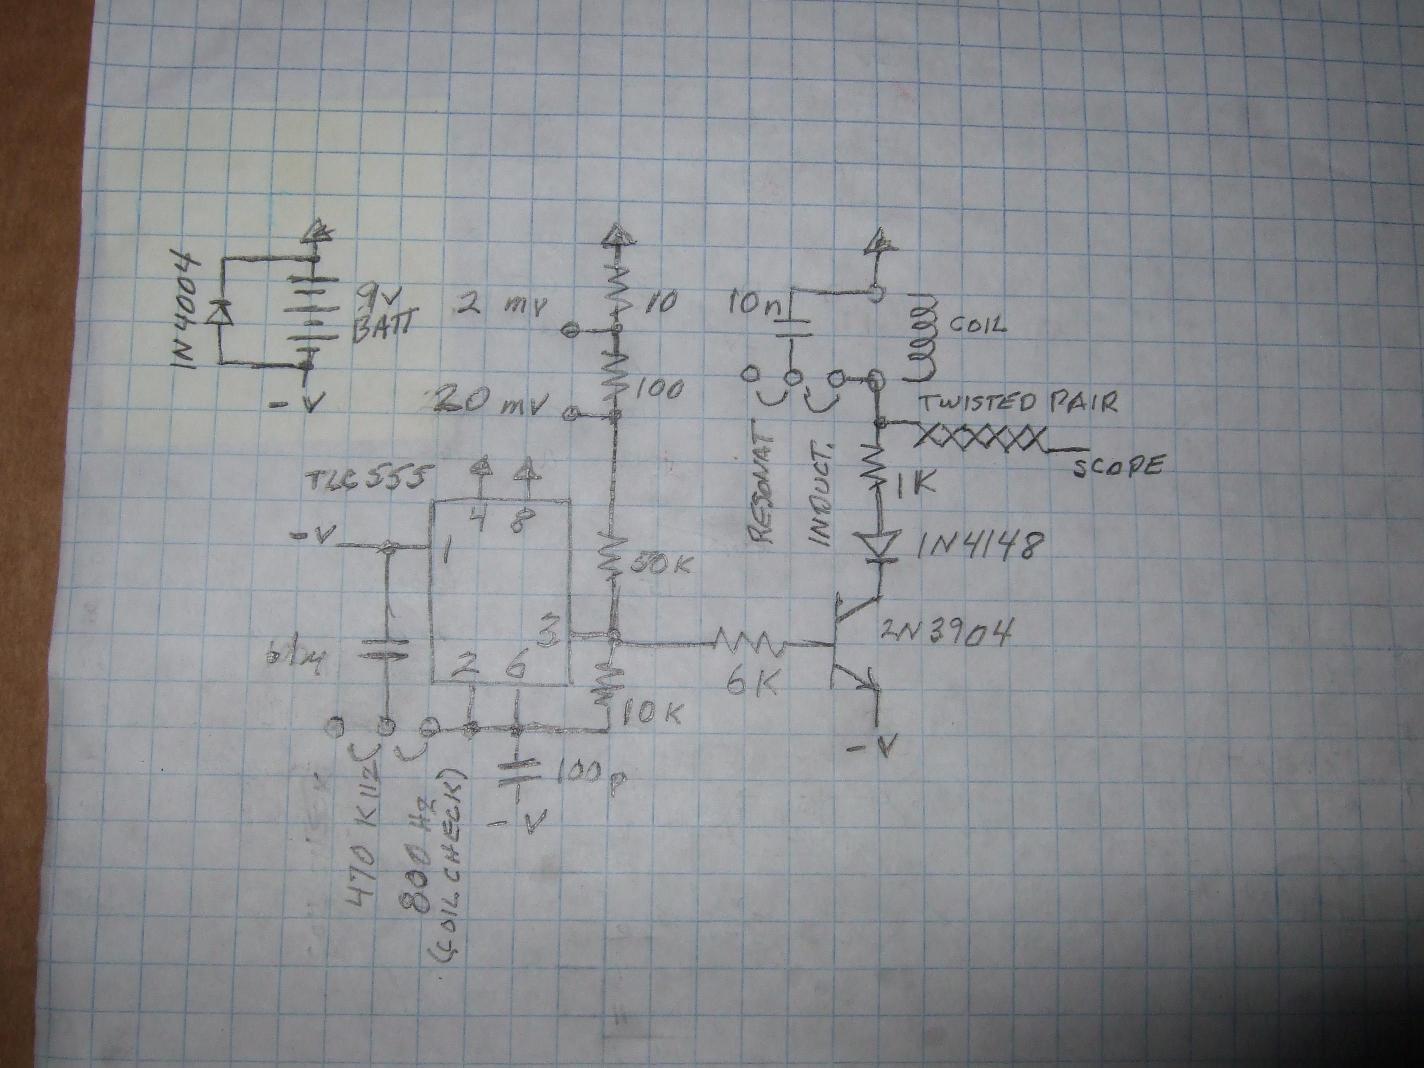 1N4004
9V
BATT
-V
2 mv
10
20 mv
100
10n
COIL
RESONAT
INDUCT.
TWISTED PAIR
SCOPE
1K
1N4148
2N3904
-V
TLC555
4 8
-V
1
3
2 6
50K
6K
10K
100p
-V
470 KHz
800 Hz
(COIL CHECK)